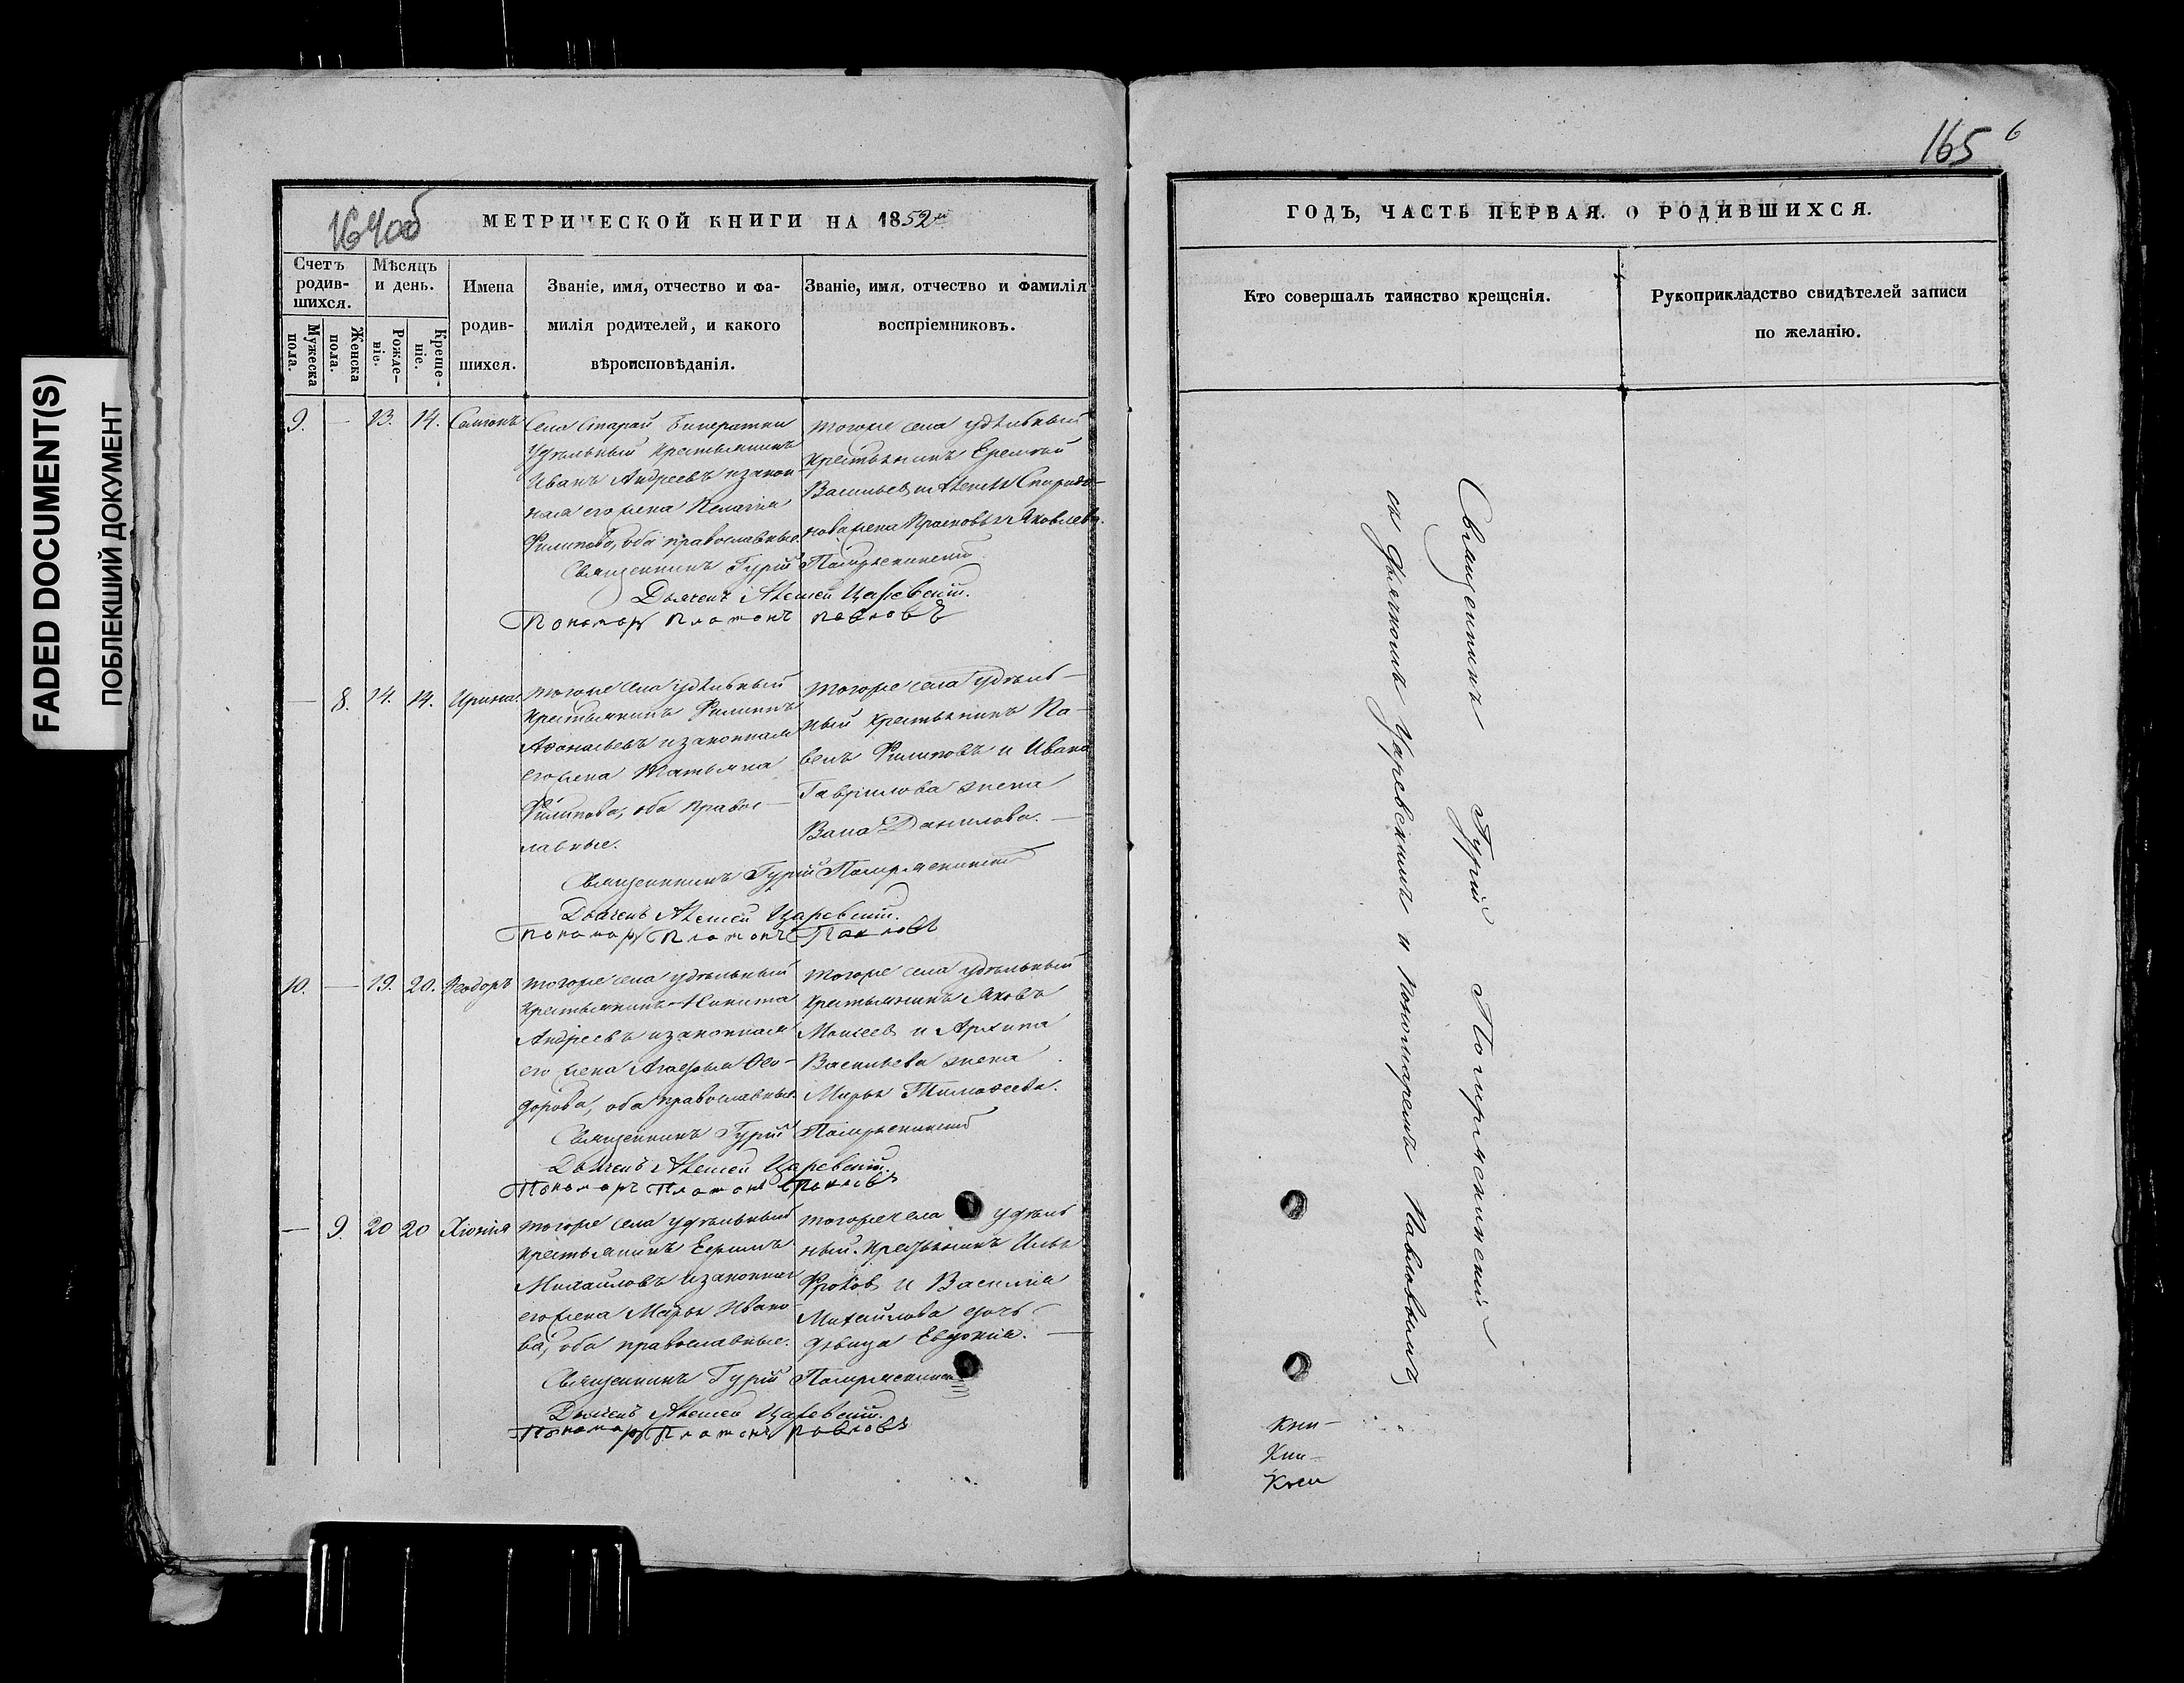 FADED DOCUMENT(S)
ПОБЛЕКШИЙ ДОКУМЕНТ
164об
МЕТРИЧЕСКОЙ КНИГИ НА 1852й
Счетъ родив-шихся.
Мѣсяцъ и день.
Имена родив-шихся.
Званіе, имя, отчество и фа-
милія родителей, и какого
вѣроисповѣданія.
Званіе, имя, отчество и фамилія
воспріемниковъ.
Мужеска пола.
Женска пола.
Рожде-ніе.
Креще-ніе.
9. — 13. 14.
Села Старай
Удѣльный крестьянинъ
Иванъ Андреевъ и закон-
ная его жена Пелагіа
Филипова, оба православные.
тогоже села удѣльный
крестьянинъ Еремѣй
Васильев и
нова жена Прасковья Яковлева.
Священникъ Гурій
Дьячекъ Алексей Царевскій.
Пономарь Платонъ Павловъ
— 8. 14. 14. Ирина.
тогоже села удѣльный
крестьянинъ Филиппъ
Афонасьевъ и законная
его жена Татьяна
Филипова, оба правос-
лавные.
тогоже села удѣль-
ный крестьянинъ Па-
велъ Филиповъ и Ивана
Гаврилова жена
Данилова. —
Священникъ Гурій
Дьячекъ Алексей Царевскій.
Пономарь Платонъ Павловъ
10. — 19. 20. Ѳеодоръ
тогоже села удѣльный
крестьянинъ Никита
Андреевъ и законная
его жена Агафья Ѳео-
дорова, оба православные.
тогоже села удѣльный
крестьянинъ Яковъ
Моисеев и Архипа
Васильева жена
Марья Тимофеева.
Священникъ Гурій
Дьячекъ Алексей Царевскій.
Пономарь Платонъ Павловъ
— 9. 20 20 Хіонія
тогоже села удѣльный
крестьянинъ Ефимъ
Михайловъ и законная
его жена Марья Ивано-
ва, оба православные.
тогоже села удѣль
ный крестьянинъ Илья
Фролов и Василіа
Михайлова дочь
дѣвица Евдокіа. —
Священникъ Гурій
Дьячекъ Алексей Царевскій.
Пономарь Платонъ Павловъ
165
6
ГОДЪ, ЧАСТЬ ПЕРВАЯ. О РОДИВШИХСЯ.
Кто совершалъ таинство крещенія.
Рукоприкладство свидѣтелей записи
по желанію.
Священникъ Гурій
съ Дьячкомъ Царевскимъ и Пономаремъ Павловымъ